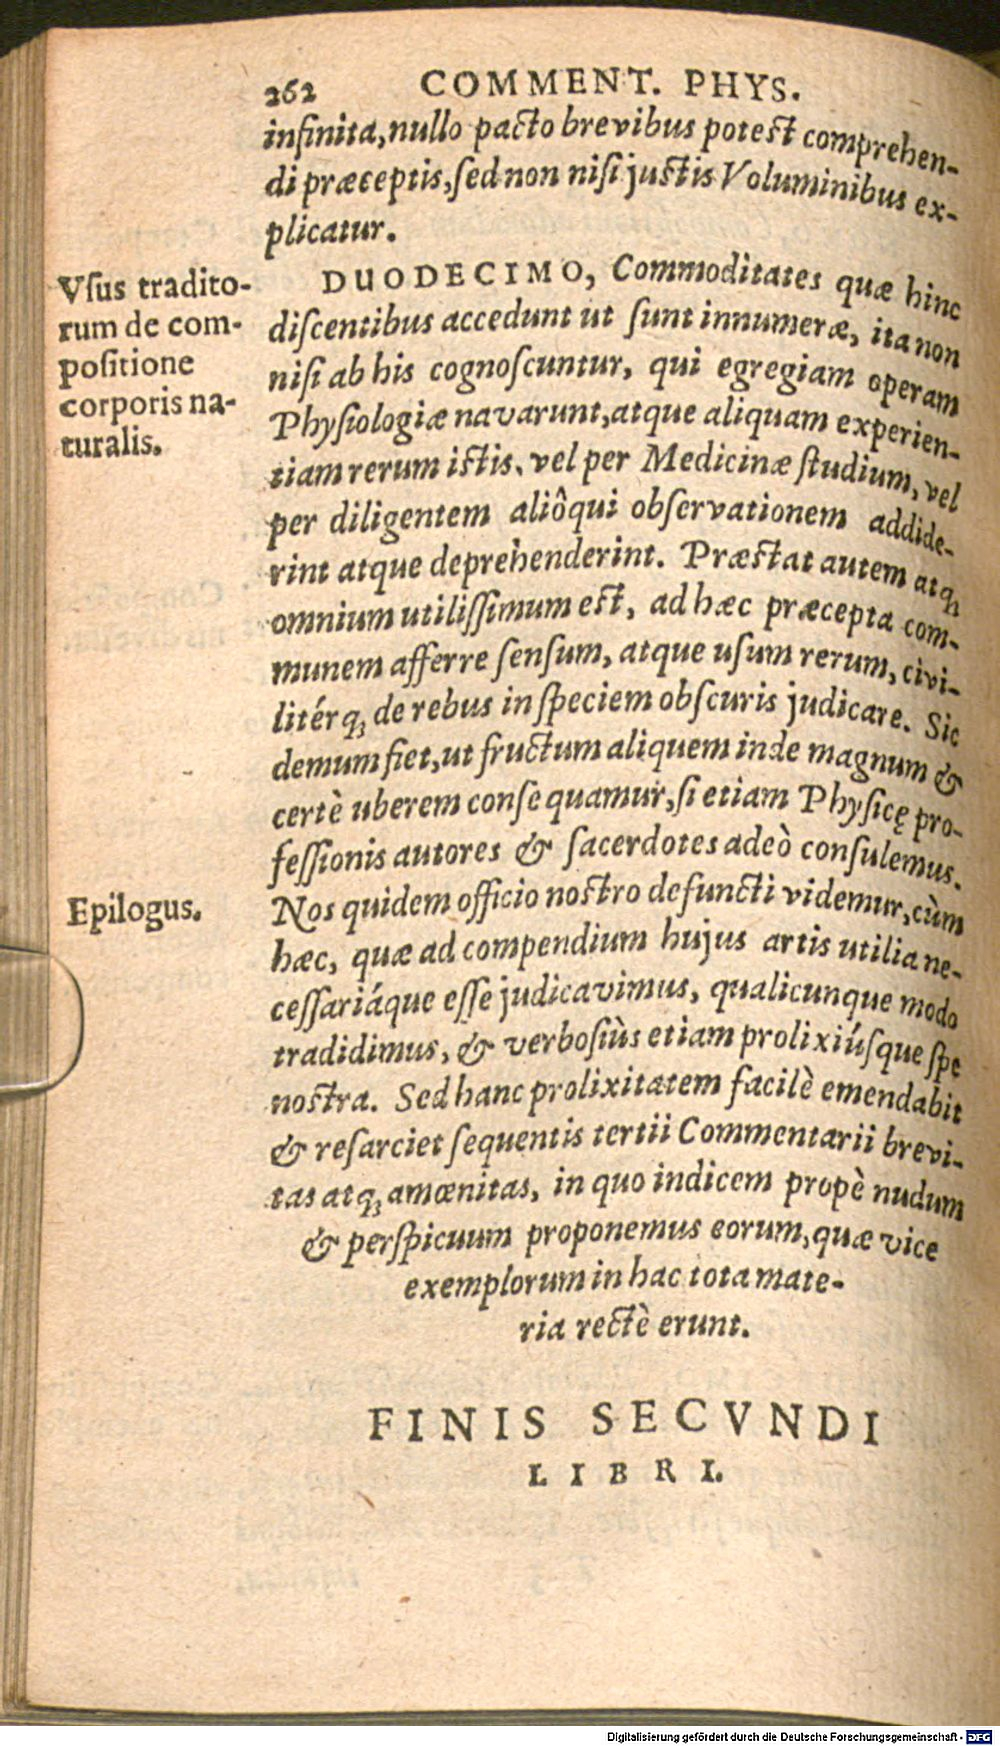 262 COMMENT. PHYS.
infinita, nullo pacto brevibus potest comprehen-
di præceptis, sed non nisi justis Voluminibus ex-
plicatur.
Vsus tradito-
rum de com-
positione
corporis na-
turalis.
DUODECIMO, Commoditates quæ hinc
discentibus accedunt ut sunt innumeræ, ita non
nisi ab his cognoscuntur, qui egregiam operam
Physiologiæ navarunt, atque aliquam experien-
tiam rerum istis, vel per Medicinæ studium, vel
per diligentem aliôqui observationem addide-
rint atque deprehenderint. Præstat autem atq;
omnium utilissimum est, ad hæc præcepta com-
munem afferre sensum, atque usum rerum, civi-
litérq; de rebus in speciem obscuris judicare. Sic
demum fiet, ut fructum aliquem inde magnum &
certè uberem consequamur, si etiam Physicę pro-
fessionis autores & sacerdotes adeò consulemus.
Epilogus.
Nos quidem officio nostro defuncti videmur, cùm
hæc, quæ ad compendium hujus artis utilia ne-
cessariáque esse judicavimus, qualicunque modo
tradidimus, & verbosiùs etiam prolixiúsque spe
nostra. Sed hanc prolixitatem facilè emendabit
& resarciet sequentis tertii Commentarii brevi-
tas atq; amœnitas, in quo indicem propè nudum
& perspicuum proponemus eorum, quæ vice
exemplorum in hac tota mate-
ria rectè erunt.
FINIS SECVNDI
LIBRI.
Digitalisierung gefördert durch die Deutsche Forschungsgemeinschaft - DFG